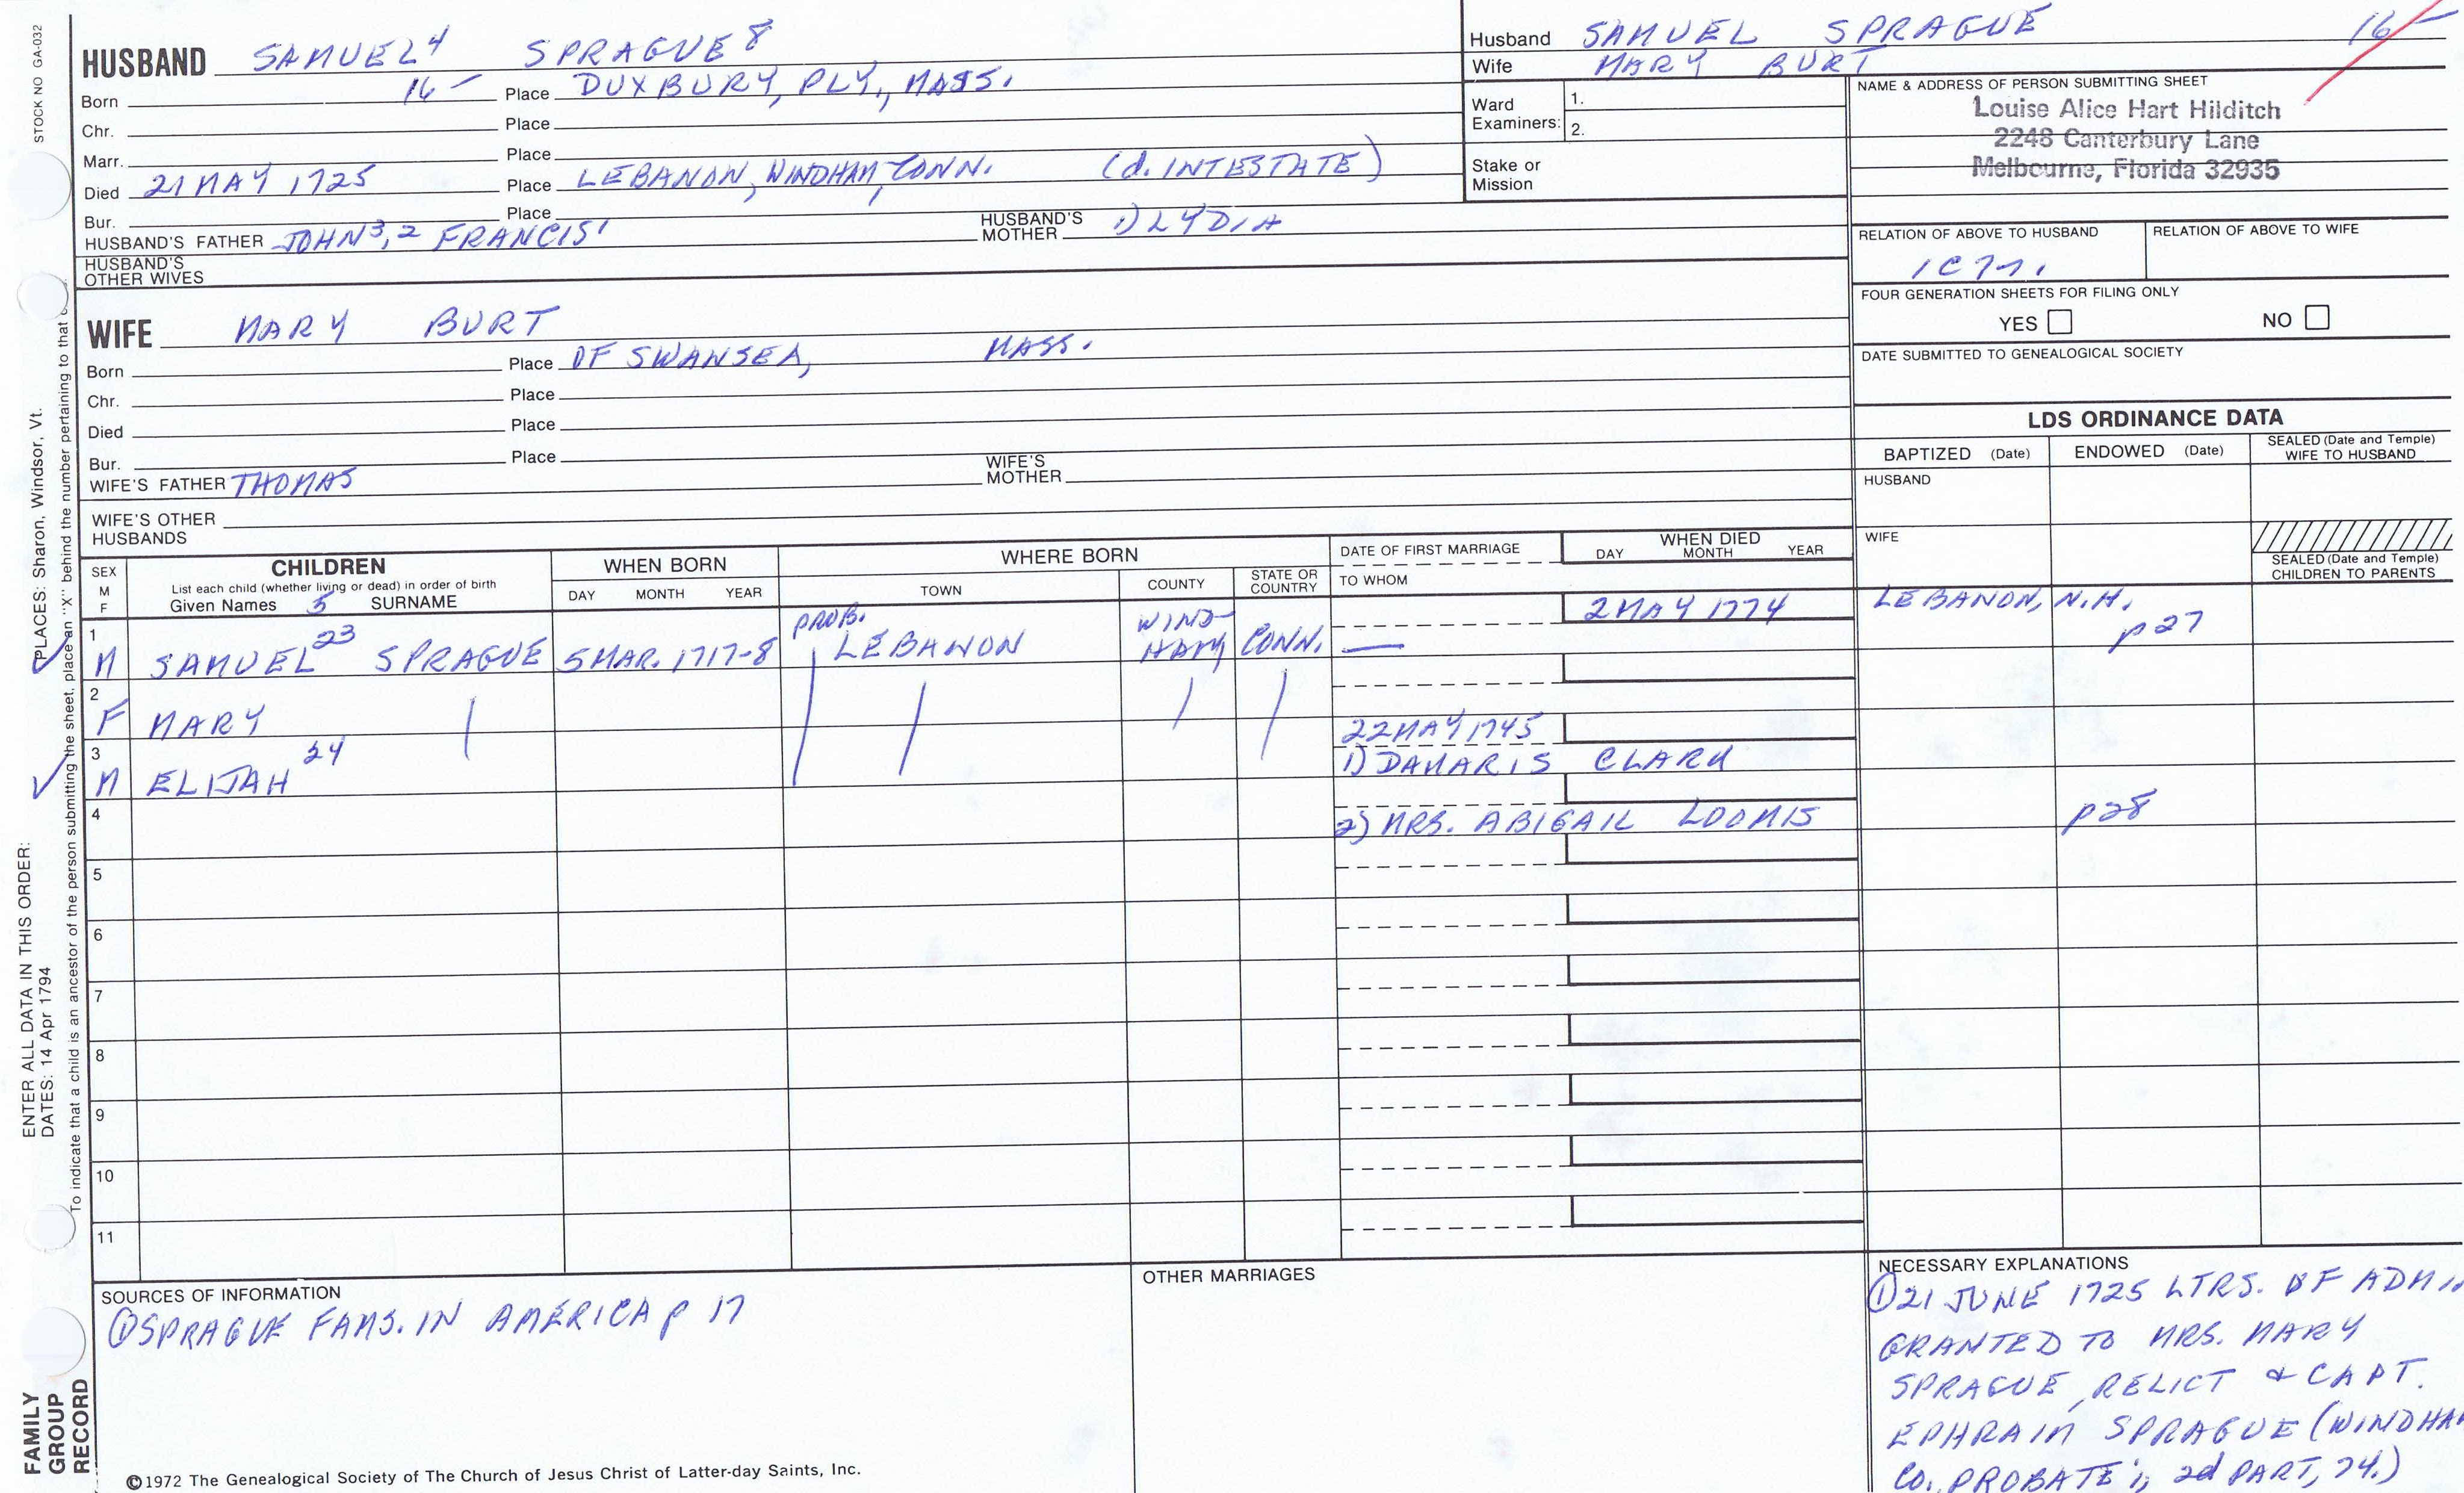 STOCK NO GA-032
HUSBAND SAMUEL⁴ SPRAGUE⁸
Born 16— Place DUXBURY, PLY., MASS.
Chr. Place
Marr. Place
Died 21 MAY 1725 Place LEBANON, WINDHAM, CONN. (d. INTESTATE)
Bur. Place
HUSBAND'S FATHER JOHN³,² FRANCIS¹ HUSBAND'S MOTHER 1) LYDIA
HUSBAND'S OTHER WIVES
WIFE MARY BURT
Born Place OF SWANSEA, MASS.
Chr. Place
Died Place
Bur. Place
WIFE'S FATHER THOMAS WIFE'S MOTHER
WIFE'S OTHER HUSBANDS
Husband SAMUEL SPRAGUE 16—
Wife MARY BURT
Ward Examiners: 1.
2.
Stake or Mission
NAME & ADDRESS OF PERSON SUBMITTING SHEET
Louise Alice Hart Hilditch
2248 Canterbury Lane
Melbourne, Florida 32935
RELATION OF ABOVE TO HUSBAND RELATION OF ABOVE TO WIFE
FOUR GENERATION SHEETS FOR FILING ONLY
YES NO
DATE SUBMITTED TO GENEALOGICAL SOCIETY
LDS ORDINANCE DATA
BAPTIZED (Date) ENDOWED (Date) SEALED (Date and Temple) WIFE TO HUSBAND
HUSBAND
WIFE
SEALED (Date and Temple) CHILDREN TO PARENTS
SEX M F CHILDREN WHEN BORN WHERE BORN DATE OF FIRST MARRIAGE WHEN DIED
List each child (whether living or dead) in order of birth
Given Names 5 SURNAME DAY MONTH YEAR TOWN COUNTY STATE OR COUNTRY TO WHOM DAY MONTH YEAR
1 M SAMUEL²³ SPRAGUE 5 MAR. 1717-8 PROB. LEBANON WIND-HAM CONN. — 2 MAY 1774 LEBANON, N.H. p27
2 F MARY
3 M ELIJAH²⁴ 22 MAY 1745 1) DAMARIS CLARK
4 2) MRS. ABIGAIL LOOMIS p28
5
6
7
8
9
10
11
SOURCES OF INFORMATION
① SPRAGUE FAMS. IN AMERICA p 17
OTHER MARRIAGES
NECESSARY EXPLANATIONS
① 21 JUNE 1725 LTRS. OF ADMIN
GRANTED TO MRS. MARY
SPRAGUE, RELICT & CAPT.
EPHRAIM SPRAGUE (WINDHAM
CO. PROBATE 1, 2d PART, 74.)
©1972 The Genealogical Society of The Church of Jesus Christ of Latter-day Saints, Inc.
FAMILY GROUP RECORD
ENTER ALL DATA IN THIS ORDER:
DATES: 14 Apr 1794 PLACES: Sharon, Windsor, Vt.
To indicate that a child is an ancestor of the person submitting the sheet, place an "X" behind the number pertaining to that